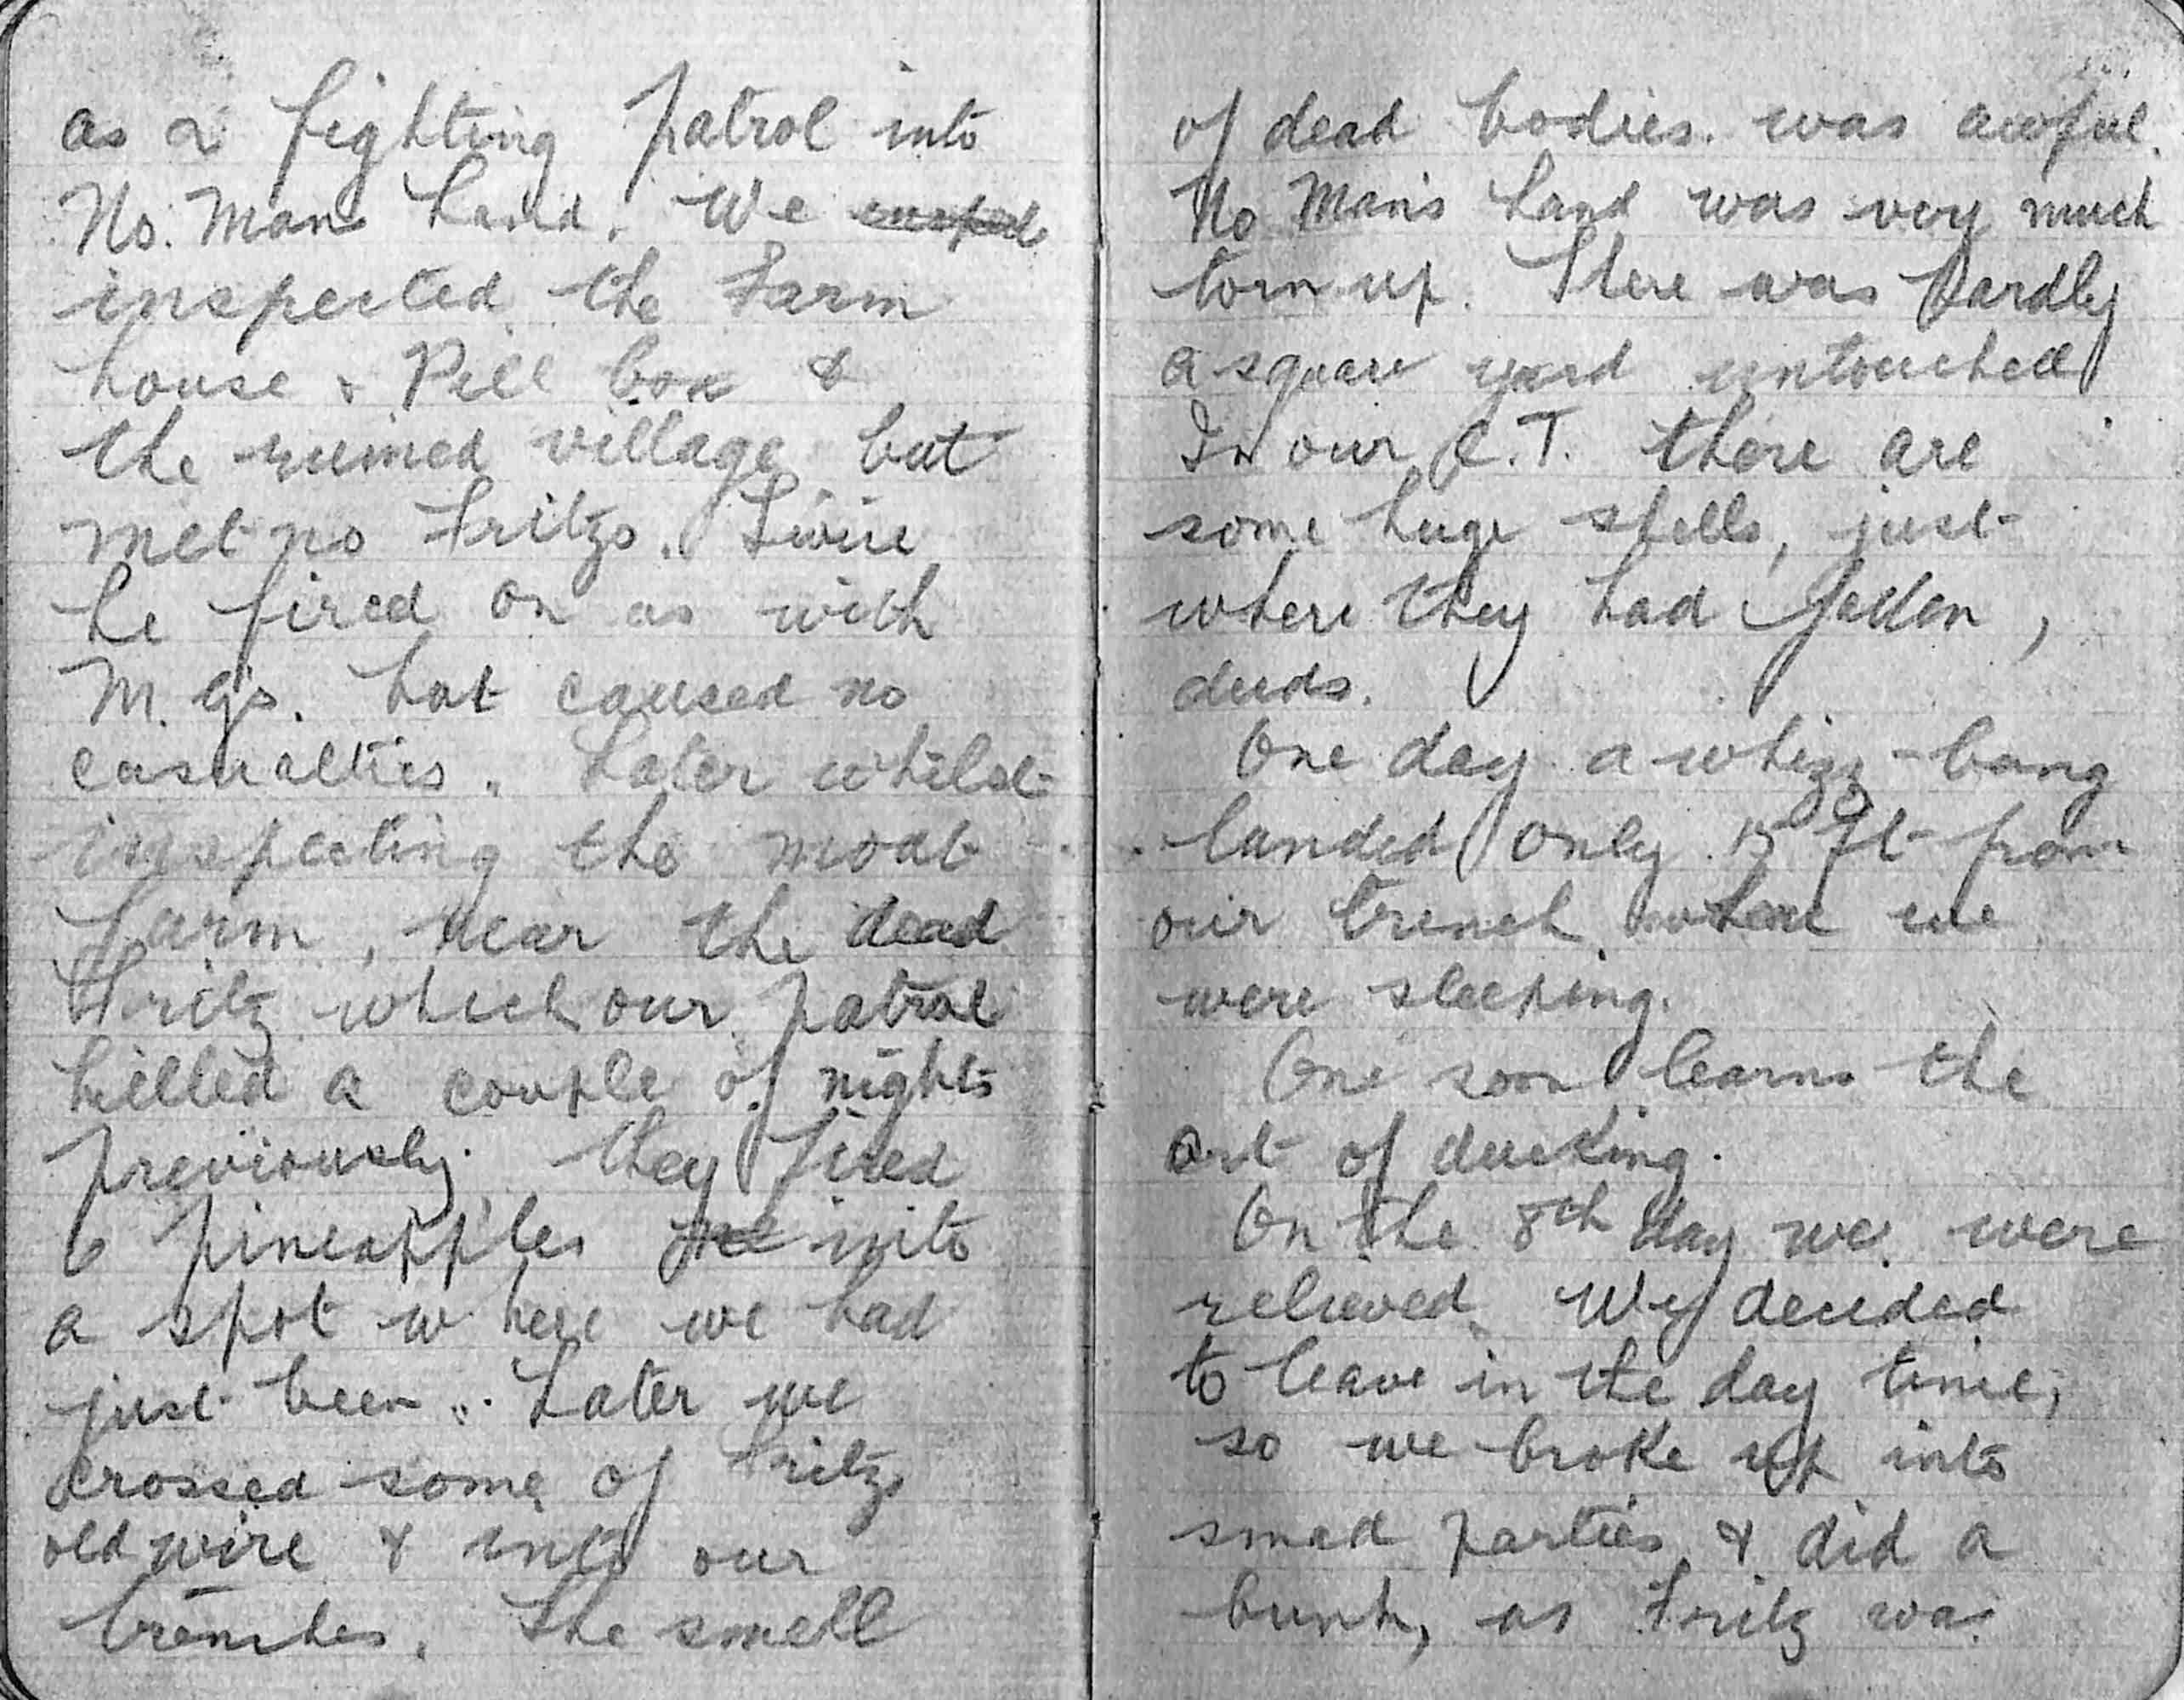 as a fighting patrol into
No. Mans Land. We
inspected the Farm
house & Pill box &
the ruined village but
met no Fritzs. Twice
he fired on us with
M. G's. but caused no
casualties. Later whilst
inspecting the moat
farm, near the dead
Fritz which our patrol
killed a couple of nights
previously. they fired
6 pineapples into
a spot where we had
just been. Later we
crossed some of Fritzs
old wire & into our
trenches. The smell
of dead bodies. was awful.
No Man's Land was very much
torn up. There was hardly
a square yard untouched
In our C.T. there are
some huge shells, just
where they had fallen,
duds.
One day a whizz-bang
landed only 15 ft from
our trench where we
were sleeping.
One soon learns the
art of ducking.
On the 8th day we were
relieved. We decided
to leave in the day time,
so we broke up into
small parties & did a
bunk, as Fritz was